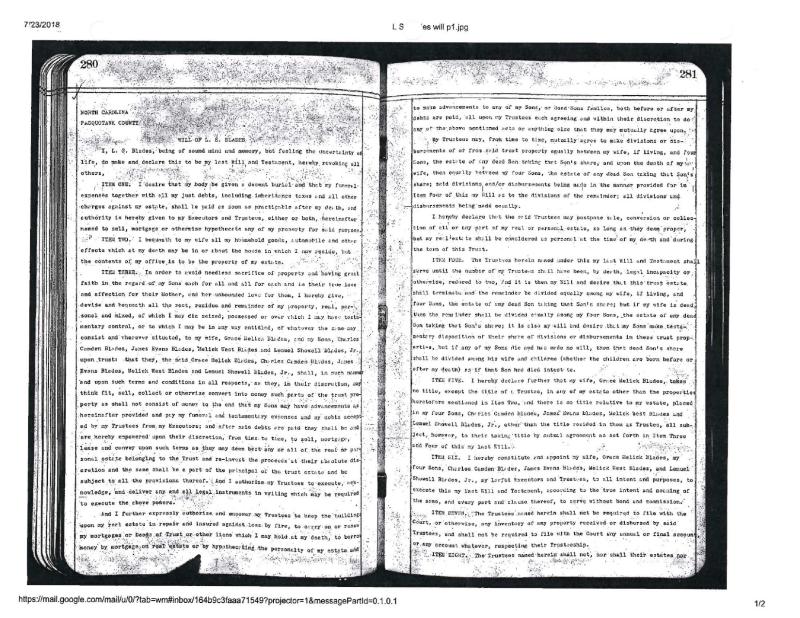 7/23/2018
L S es will p1.jpg
280
NORTH CAROLINA
PASQUOTANK COUNTY
WILL OF L. S. BLADES
I, L. S. Blades, being of sound mind and memory, but feeling the uncertainty of
life, do make and declare this to be my last Will and Testament, hereby revoking all
others.
ITEM ONE. I desire that my body be given a decent burial and that my funeral
expenses together with all my just debts, including inheritance taxes and all other
charges against my estate, shall be paid as soon as practicable after my death, and
authority is hereby given to my Executors and Trustees, either or both, hereinafter
named to sell, mortgage or otherwise hypothecate any of my property for said purpose.
ITEM TWO. I bequeath to my wife all my household goods, automobile and other
effects which at my death may be in or about the house in which I now reside, but
the contents of my office is to be the property of my estate.
ITEM THREE. In order to avoid needless sacrifice of property and having great
faith in the regard of my Sons each for all and all for each and in their true love
and affection for their Mother, and her unbounded love for them, I hereby give,
devise and bequeath all the rest, residue and remainder of my property, real, per-
sonal and mixed, of which I may die seized, possessed or over which I may have testa-
mentary control, or to which I may be in any way entitled, of whatever the same may
consist and wherever situated, to my wife, Grace Melick Blades, and my Sons, Charles
Camden Blades, James Evans Blades, Melick West Blades and Lemuel Showell Blades, Jr.,
upon trust: that they, the said Grace Melick Blades, Charles Camden Blades, James
Evans Blades, Melick West Blades and Lemuel Showell Blades, Jr., shall, in such manner
and upon such terms and conditions in all respects, as they, in their discretion, may
think fit, sell, collect or otherwise convert into money such parts of the trust pro-
perty as shall not consist of money to the end that my Sons may have advancements as
hereinafter provided and pay my funeral and testamentary expenses and my debts accept-
ed by my Trustees from my Executors; and after said debts are paid they shall be and
are hereby empowered upon their discretion, from time to time, to sell, mortgage,
lease and convey upon such terms as they may deem best any or all of the real or per-
sonal estate belonging to the Trust and re-invest the proceeds at their absolute dis-
cretion and the same shall be a part of the principal of the trust estate and be
subject to all the provisions thereof. And I authorize my Trustees to execute, ack-
nowledge, and deliver any and all legal instruments in writing which may be required
to execute the above powers.
And I further expressly authorize and empower my Trustees to keep the buildings
upon my real estate in repair and insured against loss by fire, to carry on or renew
my mortgages or Deeds of Trust or other liens which I may hold at my death, to borrow
money by mortgage on real estate or by hypothecating the personalty of my estate and
281
to make advancements to any of my Sons, or dead Sons families, both before or after my
debts are paid, all upon my Trustees each agreeing and within their discretion to do
any of the above mentioned acts or anything else that they may mutually agree upon.
My Trustees may, from time to time, mutually agree to make divisions or dis-
bursements of or from said trust property equally between my wife, if living, and four
Sons, the estate of any dead Son taking that Son's share, and upon the death of my
wife, then equally between my four Sons, the estate of any dead Son taking that Son's
share; said divisions and/or disbursements being made in the manner provided for in
Item Four of this my Will as to the divisions of the remainder; all divisions and
disbursements being made equally.
I hereby declare that the said Trustees may postpone sale, conversion or collec-
tion of all or any part of my real or personal estate, so long as they deem proper,
but my real estate shall be considered as personal at the time of my death and during
the term of this Trust.
ITEM FOUR. The Trustees herein named under this my last Will and Testament shall
serve until the number of my Trustees shall have been, by death, legal incapacity or
otherwise, reduced to two, And it is then my Will and desire that this trust estate
shall terminate and the remainder be divided equally among my wife, if living, and
four Sons, the estate of any dead Son taking that Son's share; but if my wife is dead,
then the remainder shall be divided equally among my four Sons, the estate of any dead
Son taking that Son's share; it is also my will and desire that my Sons make testa-
mentary disposition of their share of divisions or disbursements in these trust prop-
erties, but if any of my Sons die and has made no will, then that dead Son's share
shall be divided among his wife and children (whether the children are born before or
after my death) as if that Son had died intestate.
ITEM FIVE. I hereby declare further that my wife, Grace Melick Blades, takes
no title, except the title of a Trustee, in any of my estate other than the properties
heretofore mentioned in Item Two, and there is no title relative to my estate, placed
in my four Sons, Charles Camden Blades, James Evans Blades, Melick West Blades and
Lemuel Showell Blades, Jr., other than the title resided in them as Trustees, all sub-
ject, however, to their taking title by mutual agreement as set forth in Item Three
and Four of this my last Will.
ITEM SIX. I hereby constitute and appoint my wife, Grace Melick Blades, my
four Sons, Charles Camden Blades, James Evans Blades, Melick West Blades, and Lemuel
Showell Blades, Jr., my lawful Executors and Trustees, to all intent and purposes, to
execute this my last Will and Testament, according to the true intent and meaning of
the same, and every part and clause thereof, to serve without bond and commission.
ITEM SEVEN. The Trustees named herein shall not be required to file with the
Court, or otherwise, any inventory of any property received or disbursed by said
Trustees, and shall not be required to file with the Court any annual or final account
or any account whatever, respecting their Trusteeship.
ITEM EIGHT. The Trustees named herein shall not, nor shall their estates nor
https://mail.google.com/mail/u/0/?tab=wm#inbox/164b9c3faaa71549?projector=1&messagePartId=0.1.0.1
1/2